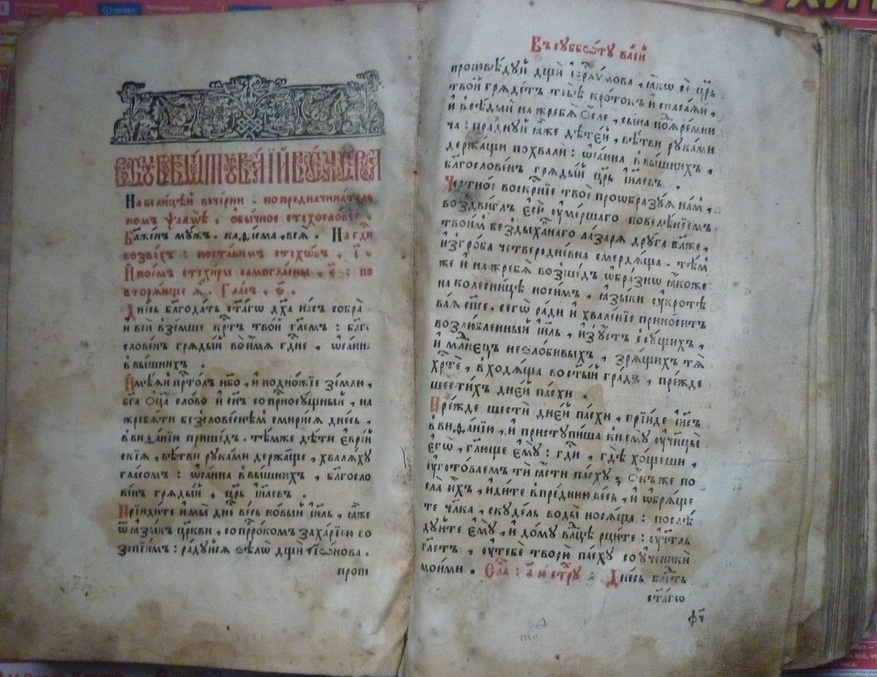 На велицѣй вечерни . по предначинател
номъ ѱалмѣ , обычное стїхословїе .
Блаженъ мужъ . каѳисма , всѧ . На гдⷭ҇и
воззвахъ : поставимъ стїховъ , і҃ .
И поемъ стⷯиры самогласны , є҃ : по
вторѧюще ѧ҆̀ . Гласъ , ѕ҃ .
Днесь благодать ст҃агѡ дх҃а насъ собра
и вси вземше крⷭ҇тъ твой гл҃емъ : бл҃го
словенъ грѧдый во имѧ гдⷭ҇не , ѡсанна
в вышнихъ .
Имѣѧй прⷭ҇толъ нб҃о , и подножїе землю ,
бг҃а ѻц҃а слово и сн҃ъ соприсносущный , на
жребѧти безсловеснѣмъ смирисѧ днесь ,
в виѳанїи пришедъ . тѣмже дѣти єврей
скїѧ , вѣтви руками держаще , хвалѧху
гласомъ : ѡсанна в вышнихъ , бл҃госло
венъ грѧдый , цр҃ь ісл҃евъ .
Прїидите и мы днесь весь новый іил҃ь , ꙗже
ѿ ꙗзыкъ цр҃кви , со прⷪ҇рокомъ захарїею во
зопїимъ : радуйсѧ ѕѣлѡ дщи сїѡнова .
пропо
Въ суббѡту ваїй
проповѣдуй дщи іерⷭ҇лимова , ꙗкѡ се цр҃ь
твой грѧдетъ тебѣ кротокъ и спасаѧй ,
и вседый на жребѧ ѻсле , сына подъѧремни
ча : празднуй ꙗже дѣтей , вѣтви руками
держащи похвали : ѡсанна в вышнихъ ,
благословенъ грѧдый цр҃ь іил҃евъ .
Честное воскрⷭ҇нїе твое проѡбразуѧ намъ ,
воздвиглъ єси умершаго повелѣнїемъ
твоимъ бездыханнаго лазарѧ друга бл҃же ,
из гроба четверодневна смердѧща . тѣм
же и на жребѧ возшедъ ѡбразнѡ ꙗкоже
на колесницѣ носимъ , ꙗзыки укротѣ
ваѧ сп҃се . сегѡ ради и хваленїе приноситъ
возлюбленный іил҃ь , изъ устъ ссущихъ ,
и младенецъ неѕлобивыхъ , зрѧщихъ тѧ
хрⷭ҇те , входѧща во ст҃ый градъ , прежде
шестихъ дней пасхи .
Прежде шести дней пасхи , прїиде іис҃ъ
в виѳанїю , и приступиша к нему ученицы
єгѡ , гл҃юще єму : гдⷭ҇и , гдѣ хощеши ,
уготоваемъ ти ꙗсти пасху . ѻнъ же по
сла ихъ , идите в преднюю весь , и ѡбрѧще
те чл҃ка , скудель воды носѧща : послѣ
дуйте єму , и дому влⷣцѣ рцыте : учт҃ль
гл҃етъ , у тебе творю пасху со ученики
моими . Слава : а҃ и стⷯру : Днесь бл҃гть
ст҃агѡ